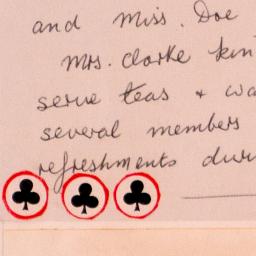 and Miss. Doe
Mrs. Clarke kin
serve teas + wa
several members
refreshments duri